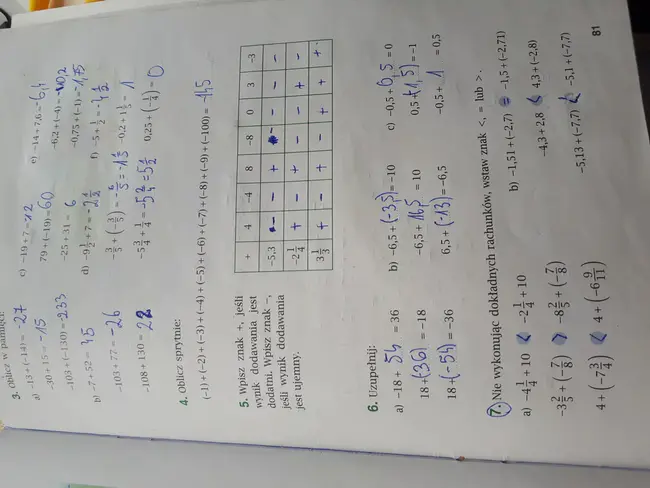 3. Oblicz w pamięci:
a) −13+(−14)= −27
−30+15= −15
−103+(−130)= 233
b) −7+52= 45
−103+77= −26
−108+130= 22
c) −19+7= −12
79+(−19)= 60
−25+31= 6
d) −9 1/2 +7= −2 1/2
3/5+(−3/5)=
−5 3/4+1/4= −5 2/4 = 5 1/2
e) −14+7,6= −6,4
−6,2+(−4)= −10,2
−0,75+(−1)= −1,75
f) −5+1/2= −4 1/2
−0,2+1 1/5= 1
0,25+(−1/4)= 0
4. Oblicz sprytnie:
(−1)+(−2)+(−3)+(−4)+(−5)+(−6)+(−7)+(−8)+(−9)+(−100)= −145
5. Wpisz znak +, jeśli
wynik dodawania jest
dodatni. Wpisz znak −,
jeśli wynik dodawania
jest ujemny.
+ 4 −4 8 −8 0 3 −3
−5,3 − − + − − −
−2 1/4 + − + − − + −
3 1/3 + − + − + + +
6. Uzupełnij:
a) −18+ 54 = 36
18+(36) = −18
18+(−54) = −36
b) −6,5+(−3,5) = −10
−6,5+ 16,5 = 10
6,5+(−13) = −6,5
c) −0,5+ 6,5 = 0
0,5+(1,5) = −1
−0,5+ 1 = 0,5
7. Nie wykonując dokładnych rachunków, wstaw znak <, = lub >.
a) −4 1/4+10 < −2 1/4+10
−3 2/5+(−7/8) > −8 2/5+(−7/8)
4+(−7 3/4) < 4+(−6 9/11)
b) −1,51+(−2,7) = −1,5+(−2,71)
−4,3+2,8 < 4,3+(−2,8)
−5,13+(−7,7) < −5,1+(−7,7)
81